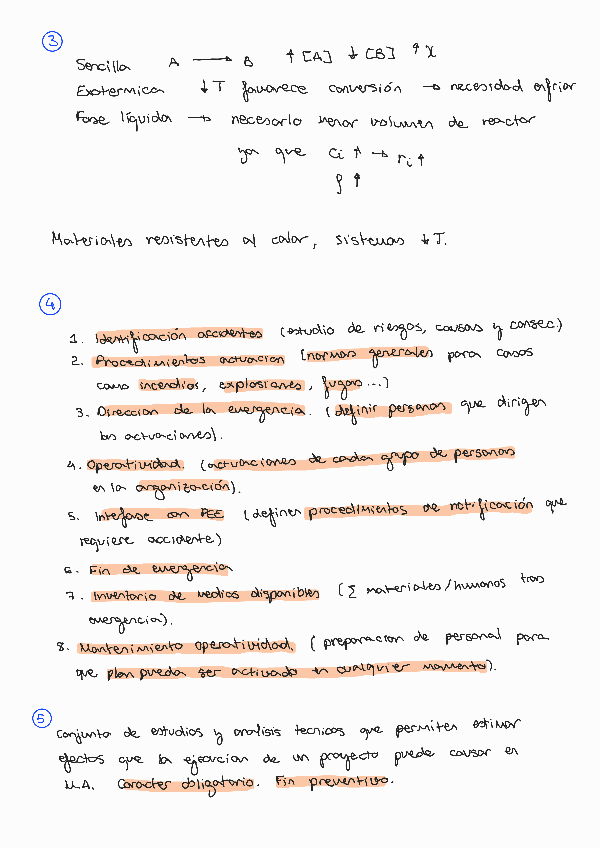 3
Sencilla A → B ↑ [A] ↓ [B] ↑ X
Exotermica ↓ T favorece conversión → necesidad enfriar
Fase líquida → necesario menor volumen de reactor
ya que Ci ↑ → ri ↑
ρ ↑
Materiales resistentes al calor, sistemas ↓ T.
4
1. Identificación accidentes (estudio de riesgos, causas y consec.)
2. Procedimientos actuacion (normas generales para casos
como incendios, explosiones, fugas...)
3. Direccion de la emergencia. (definir personas que dirigen
las actuaciones).
4. Operatividad. (actuaciones de cada grupo de personas
en la organización).
5. Interfase con PEE (definen procedimientos de notificación que
requiere accidente)
6. Fin de emergencia
7. Inventario de medios disponibles (Σ materiales/humanos tras
emergencia).
8. Mantenimiento operatividad. (preparacion de personal para
que plan pueda ser activado en cualquier momento).
5
Conjunto de estudios y analisis tecnicos que permiten estimar
efectos que la ejecucion de un proyecto puede causar en
M.A. Caracter obligatorio. Fin preventivo.